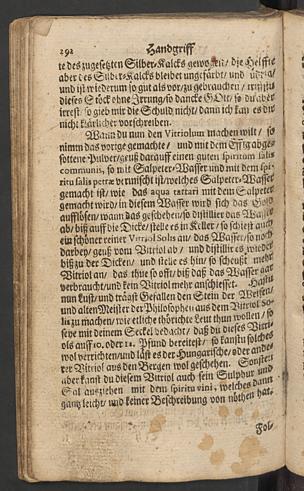 292 Handgriff
te des zugesetzten Silber-Kalcks gewogen/ die Helffte
aber des Silber-Kalcks bleibet ungefärbt/ und
und ist wiederum so gut als vor/ zu gebrauchen/ triffstu
dieses Stöck ohne Irrung/ so dancke GOtt/ so du aber
irrest/ so gieb mir die Schuld nicht/ dann ich kan es dir
nicht klärlicher vorschreiben.
Wann du nun den Vitriolum machen wilt/ so
nimm das vorige gemachte/ und mit dem Essig abge-
sottene Pulver/ geuß darauff einen guten spiritum salis
communis, so mit Salpeter-Wasser und mit dem spi-
ritu salis petræ vermischt ist/ welches Salpeter-Wasser
gemacht ist/ wie das aqua tartari mit dem Salpeter
gemacht wird/ in diesem Wasser wird sich das Gold
aufflösen/ wann das geschehen/ so distillier das Wasser
ab/ biß auff die Dicke/ stelle es in Keller/ so schiest auch
ein schöner reiner Vitriol Solis an/ das Wasser/ so noch
darbey/ geuß vom Vitriol ab/ und distillir es wieder
biß zu der Dicken/ und stelle es hin/ so scheust mehr
Vitriol an/ das thue so offt/ biß daß das Wasser gar
verbraucht/ und kein Vitriol mehr anschiesset. Hastu
nun Lust/ und trägst Gefallen den Stein der Weisen/
und alten Meister der Philosophen aus dem Vitriol So-
lis zu machen/ wie etliche thörichte Leut thun wollen/ so
seye mit deinem Seckel bedacht/ daß du dieses Vitri-
ols auff 10. oder 12. Pfund bereitest/ so kanstu solches
wol verrichten/ und läst es der Hungarische/ oder ande-
rer Vitriol aus den Bergen wol geschehen. Sonsten
aber kanst du diesem Vitriol auch sein Sulphur und
Sal ausziehen mit dem spiritu vini, welches dann
gantz leicht/ und keiner Beschreibung von nöthen hat.
Fol-